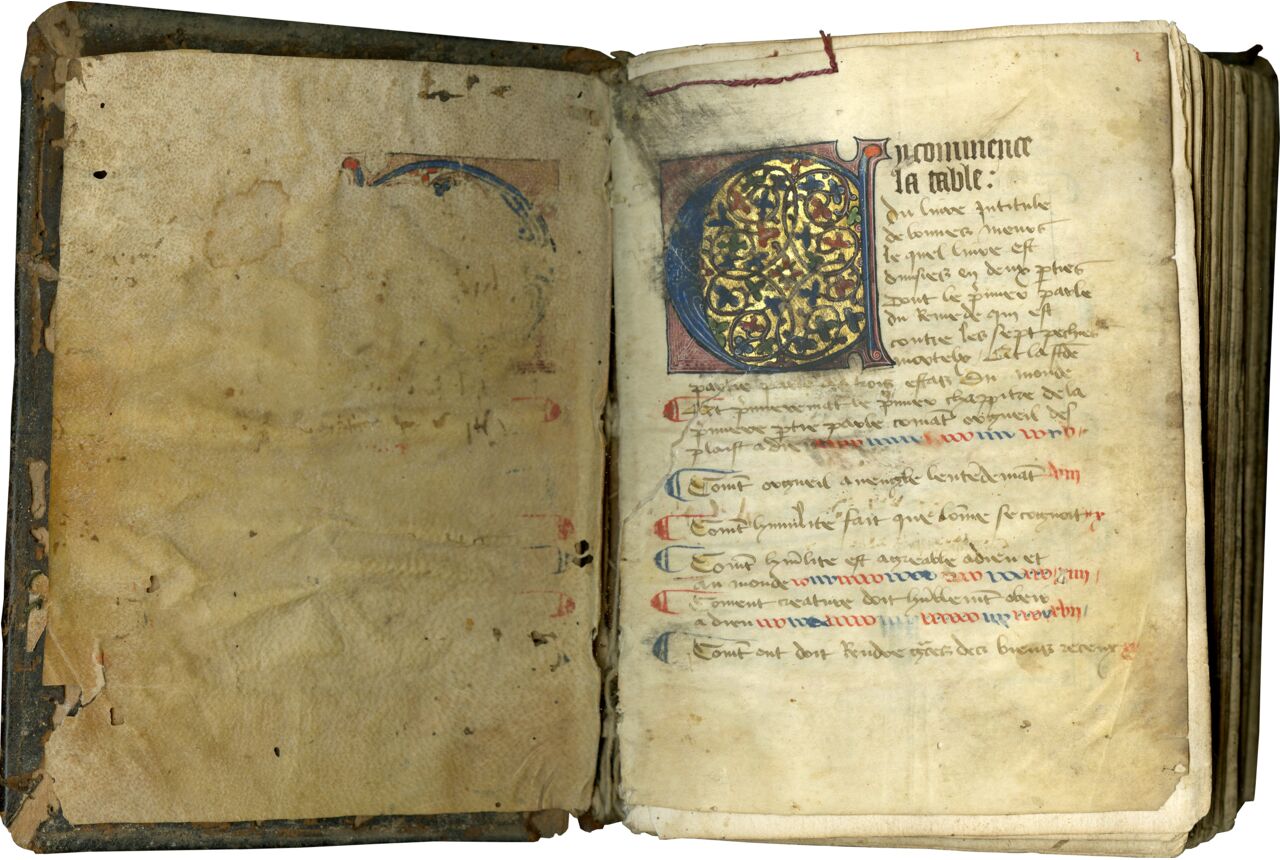 Cy commence
la table:
du livre Intitule
de bonnes meurs
le quel livre est
divisiez en deux pties
Dont le pmier parle
du Remede qui est
contre les sept pechies
mortelx / Et la sde
partie parle des trois estas Du monde
Et pmieremat le pmier chappitre de la
pmiere ptie parle comat orgueil des
plaist a dieu
Comt orgueil aveugle lentedemat viii
Comt humilite fait que lome se cognoit x
Comt hulite est agreable a dieu et
au monde
Coment creature doit hublemt obeir
a dieu
Comt ont doit Rendre graces des biens receux